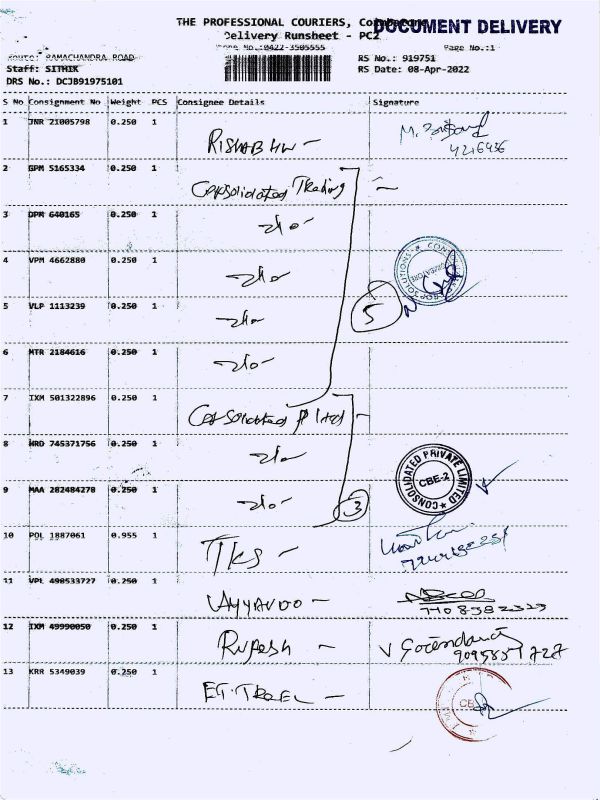 THE PROFESSIONAL COURIERS, Coimbatore
DOCUMENT DELIVERY
Delivery Runsheet - PC2
Phone No.:0422-3505555
Page No.:1
Route: RAMACHANDRA ROAD
RS No.: 919751
Staff: SITHIK
RS Date: 08-Apr-2022
DRS No.: DCJB91975101
S No Consignment No Weight PCS Consignee Details Signature
1 JNR 21005798 0.250 1
RISHABH
4216436
2 GPM 5165334 0.250 1
Consolidated Trading
3 DPR 640165 0.250 1
4 VPM 4662880 0.250 1
5 VLP 1113239 0.250 1
5
6 MTR 2184616 0.250 1
7 IXM 501322896 0.250 1
Consolidated P Ltd
8 HRD 745371756 0.250 1
CONSOLIDATED PRIVATE LIMITED
CBE-2
9 MAA 282484278 0.250 1
3
10 POL 1887061 0.955 1
TKS
11 VPL 490533727 0.250 1
12 IXM 49990050 0.250 1
Rupesh
13 KRR 5349039 0.250 1